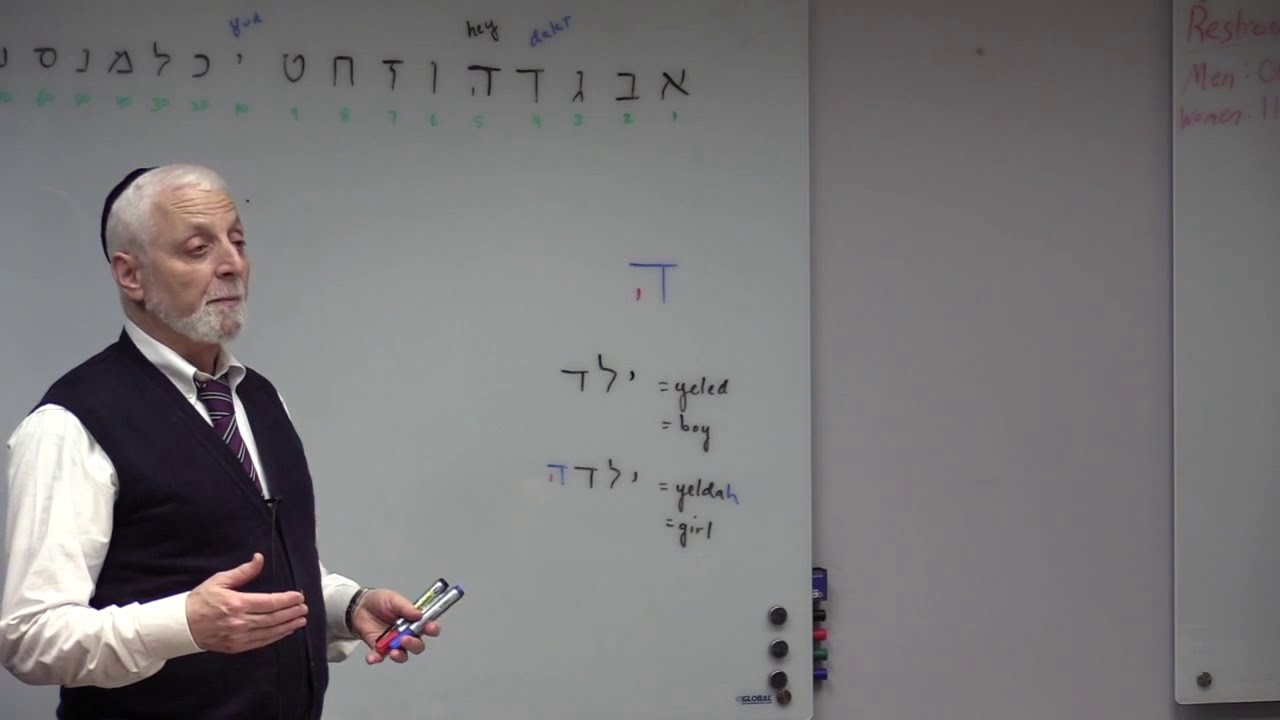 yud hey dalet
א ב ג ד ה ו ז ח ט י כ ל מ נ ס
1 2 3 4 5 6 7 8 9 10 20 30 40 50 60
ה
ילד = yeled
= boy
ילדה = yeldah
= girl
GLOBAL
Men:
Women: